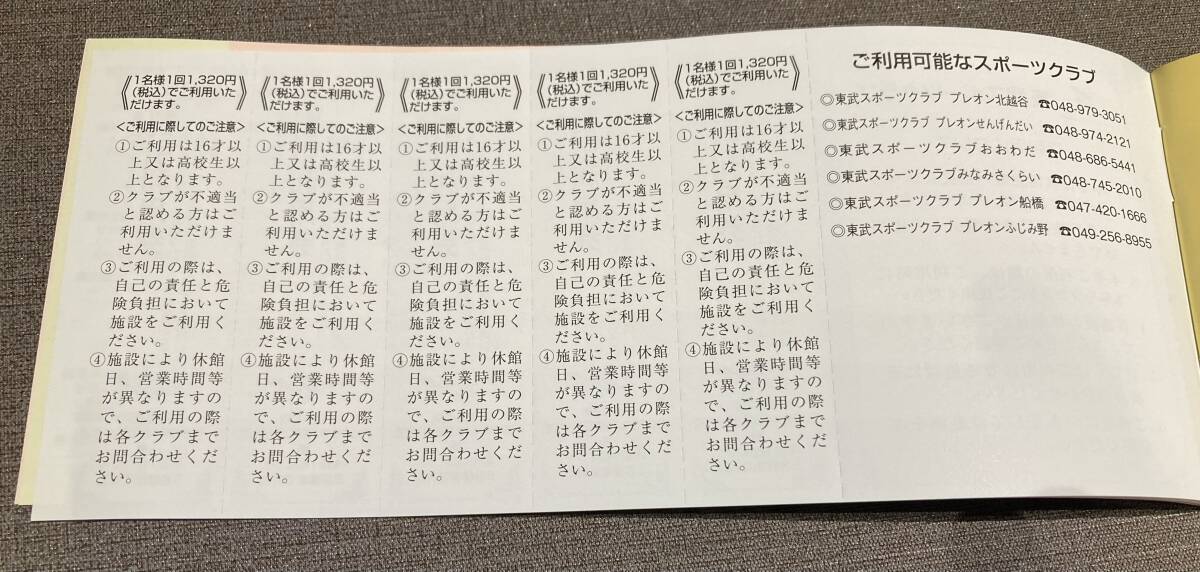 1名様1回1,320円
(税込)でご利用いた
だけます。
<ご利用に際してのご注意>
①ご利用は16才以
上又は高校生以
上となります。
②クラブが不適当
と認める方はご
利用いただけま
せん。
③ご利用の際は、
自己の責任と危
険負担において
施設をご利用く
ださい。
④施設により休館
日、営業時間等
が異なりますの
で、ご利用の際
は各クラブまで
お問合わせくだ
さい。
1名様1回1,320円
(税込)でご利用いた
だけます。
<ご利用に際してのご注意>
①ご利用は16才以
上又は高校生以
上となります。
②クラブが不適当
と認める方はご
利用いただけま
せん。
③ご利用の際は、
自己の責任と危
険負担において
施設をご利用く
ださい。
④施設により休館
日、営業時間等
が異なりますの
で、ご利用の際
は各クラブまで
お問合わせくだ
さい。
1名様1回1,320円
(税込)でご利用いた
だけます。
<ご利用に際してのご注意>
①ご利用は16才以
上又は高校生以
上となります。
②クラブが不適当
と認める方はご
利用いただけま
せん。
③ご利用の際は、
自己の責任と危
険負担において
施設をご利用く
ださい。
④施設により休館
日、営業時間等
が異なりますの
で、ご利用の際
は各クラブまで
お問合わせくだ
さい。
1名様1回1,320円
(税込)でご利用いた
だけます。
<ご利用に際してのご注意>
①ご利用は16才以
上又は高校生以
上となります。
②クラブが不適当
と認める方はご
利用いただけま
せん。
③ご利用の際は、
自己の責任と危
険負担において
施設をご利用く
ださい。
④施設により休館
日、営業時間等
が異なりますの
で、ご利用の際
は各クラブまで
お問合わせくだ
さい。
1名様1回1,320円
(税込)でご利用いた
だけます。
<ご利用に際してのご注意>
①ご利用は16才以
上又は高校生以
上となります。
②クラブが不適当
と認める方はご
利用いただけま
せん。
③ご利用の際は、
自己の責任と危
険負担において
施設をご利用く
ださい。
④施設により休館
日、営業時間等
が異なりますの
で、ご利用の際
は各クラブまで
お問合わせくだ
さい。
ご利用可能なスポーツクラブ
◎東武スポーツクラブ プレオン北越谷 ☎048-979-3051
◎東武スポーツクラブ プレオンせんげんだい ☎048-974-2121
◎東武スポーツクラブおおわだ ☎048-686-5441
◎東武スポーツクラブみなみさくらい ☎048-745-2010
◎東武スポーツクラブ プレオン船橋 ☎047-420-1666
◎東武スポーツクラブ プレオンふじみ野 ☎049-256-8955